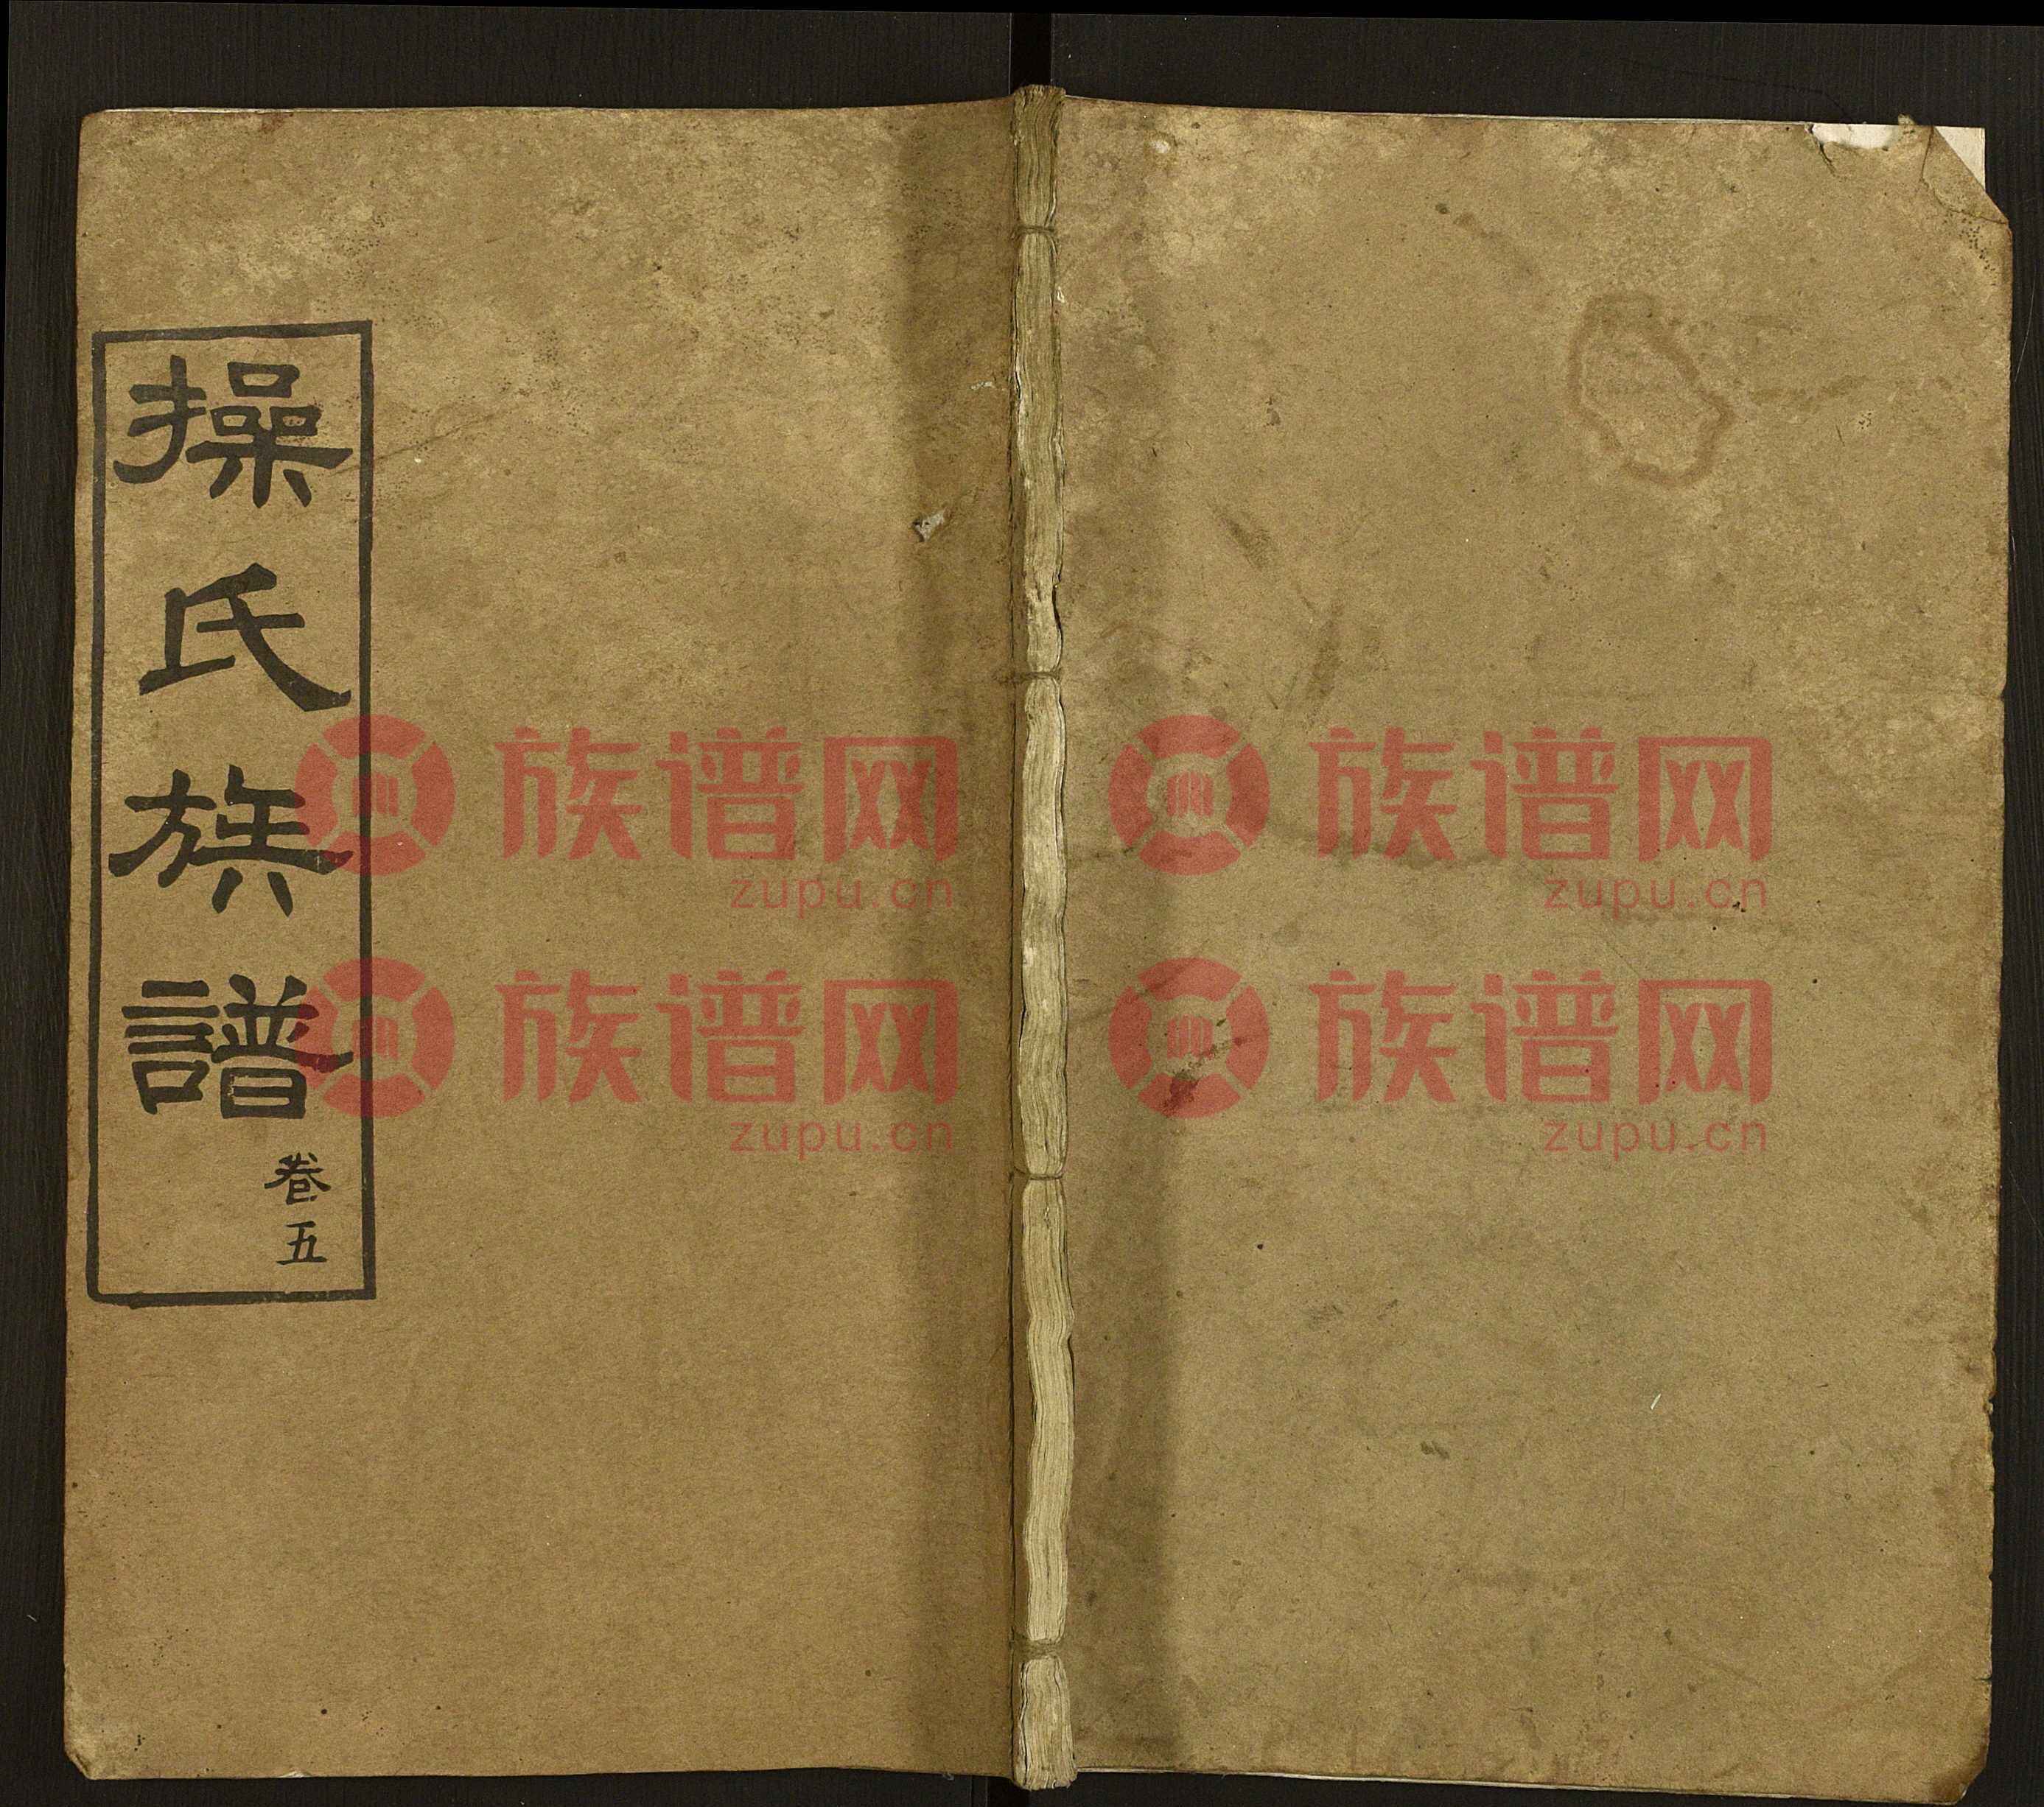 操氏族譜
卷五
族谱网 族谱网
zupu.cn zupu.cn
族谱网 族谱网
zupu.cn zupu.cn